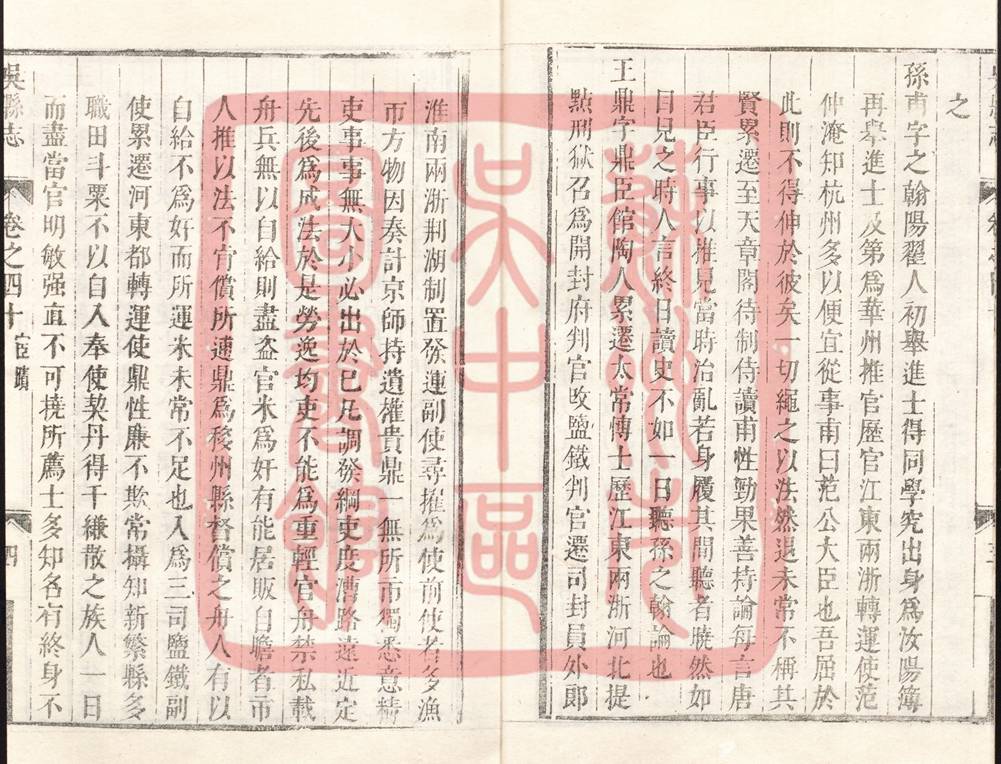 之
孫甫字之翰陽翟人初舉進士得同學究出身爲汝陽簿
再舉進士及第爲華州推官歷官江東兩浙轉運使范
仲淹知杭州多以便宜從事甫曰范公大臣也吾屈於
此則不得伸於彼矣一切繩之以法然退未常不稱其
賢累遷至天章閣待制侍讀甫性勁果善持論每言唐
君臣行事以推見當時治亂若身履其間聽者曉然如
目見之時人言終日讀史不如一日聽孫之翰論也
王鼎字鼎臣館陶人累遷太常博士歷江東兩浙河北提
點刑獄召爲開封府判官改鹽鐵判官遷司封員外郎
淮南兩浙荆湖制置發運副使尋擢爲使前使者多漁
市方物因奏計京師持遺權貴鼎一無所市獨悉意精
吏事事無大小必出於己凡調發綱吏度漕路遠近定
先後爲成法於是勞逸均吏不能爲重輕官舟禁私載
舟兵無以自給則盡盜官米爲奸有能居販自贍者市
人推以法不肯償所逋鼎爲移州縣督償之舟人有以
自給不爲奸而所運米未常不足也入爲三司鹽鐵副
使累遷河東都轉運使鼎性廉不欺常攝知新繁縣多
職田斗粟不以自入奉使契丹得千縑散之族人一日
而盡當官明敏强直不可撓所薦士多知名有終身不
吳縣志
卷之四十
宦蹟
四
蘇州市
吳中區
圖書館